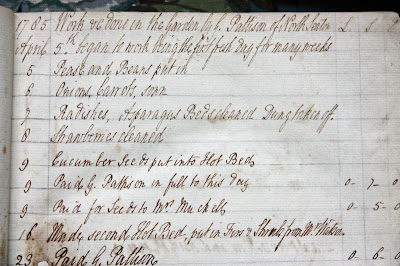 1785 Work &c done in the Garden by G. Pattison of North Seaton L S D
April 5th began to work being the first fresh day for many weeks
5 Pease and Beans put in
6 Onions, Carrots, sown
7 Radishes, Asparagus Beds cleaned Dung taken off
8 Strawberries cleaned
9 Cucumber Seeds put into Hot Bed
9 Paid G. Pattison in full to this Day 0 - 7 - 0
9 Paid for Seeds to Mrs Muckells 0 - 5 - 0
16 Made second Hot Bed, put in & Shrubs from Mr Watson
23 Paid G. Pattison 0 - 6 - 0